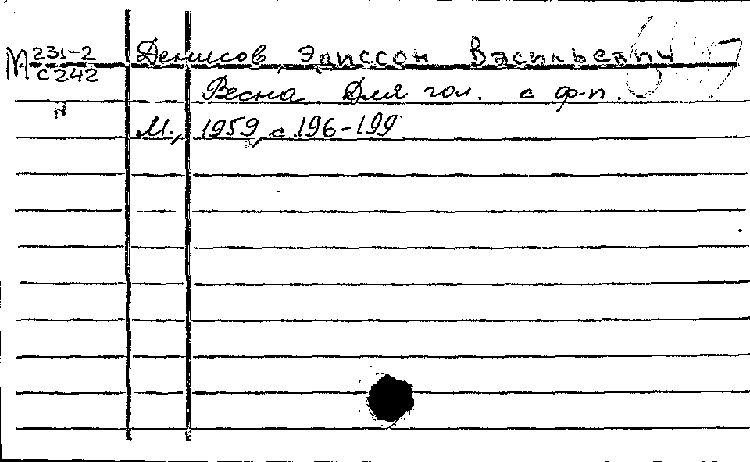 М 231-2
С242
Денисов Эдиссон Васильевич
Весна. Для гол. с ф-п.
N
М., 1959, с 196-199